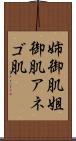 姉御肌姐
御肌アネ
ゴ肌